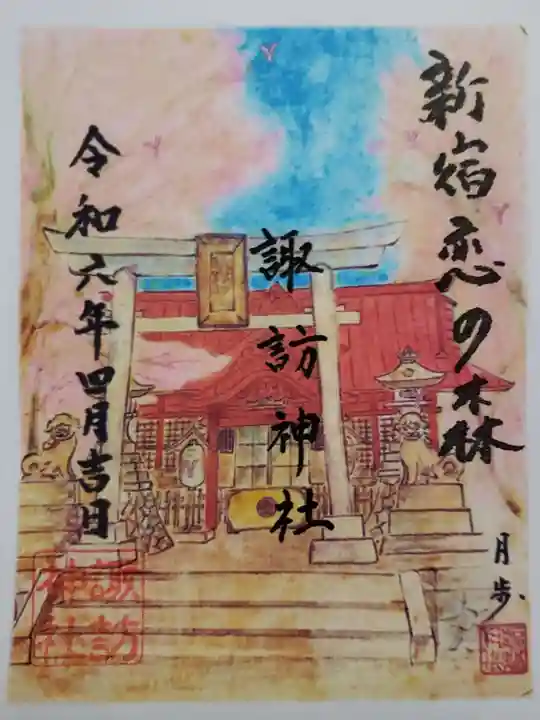 新宿恋の森
月歩
諏訪神社
令和六年四月吉日
諏訪
神社